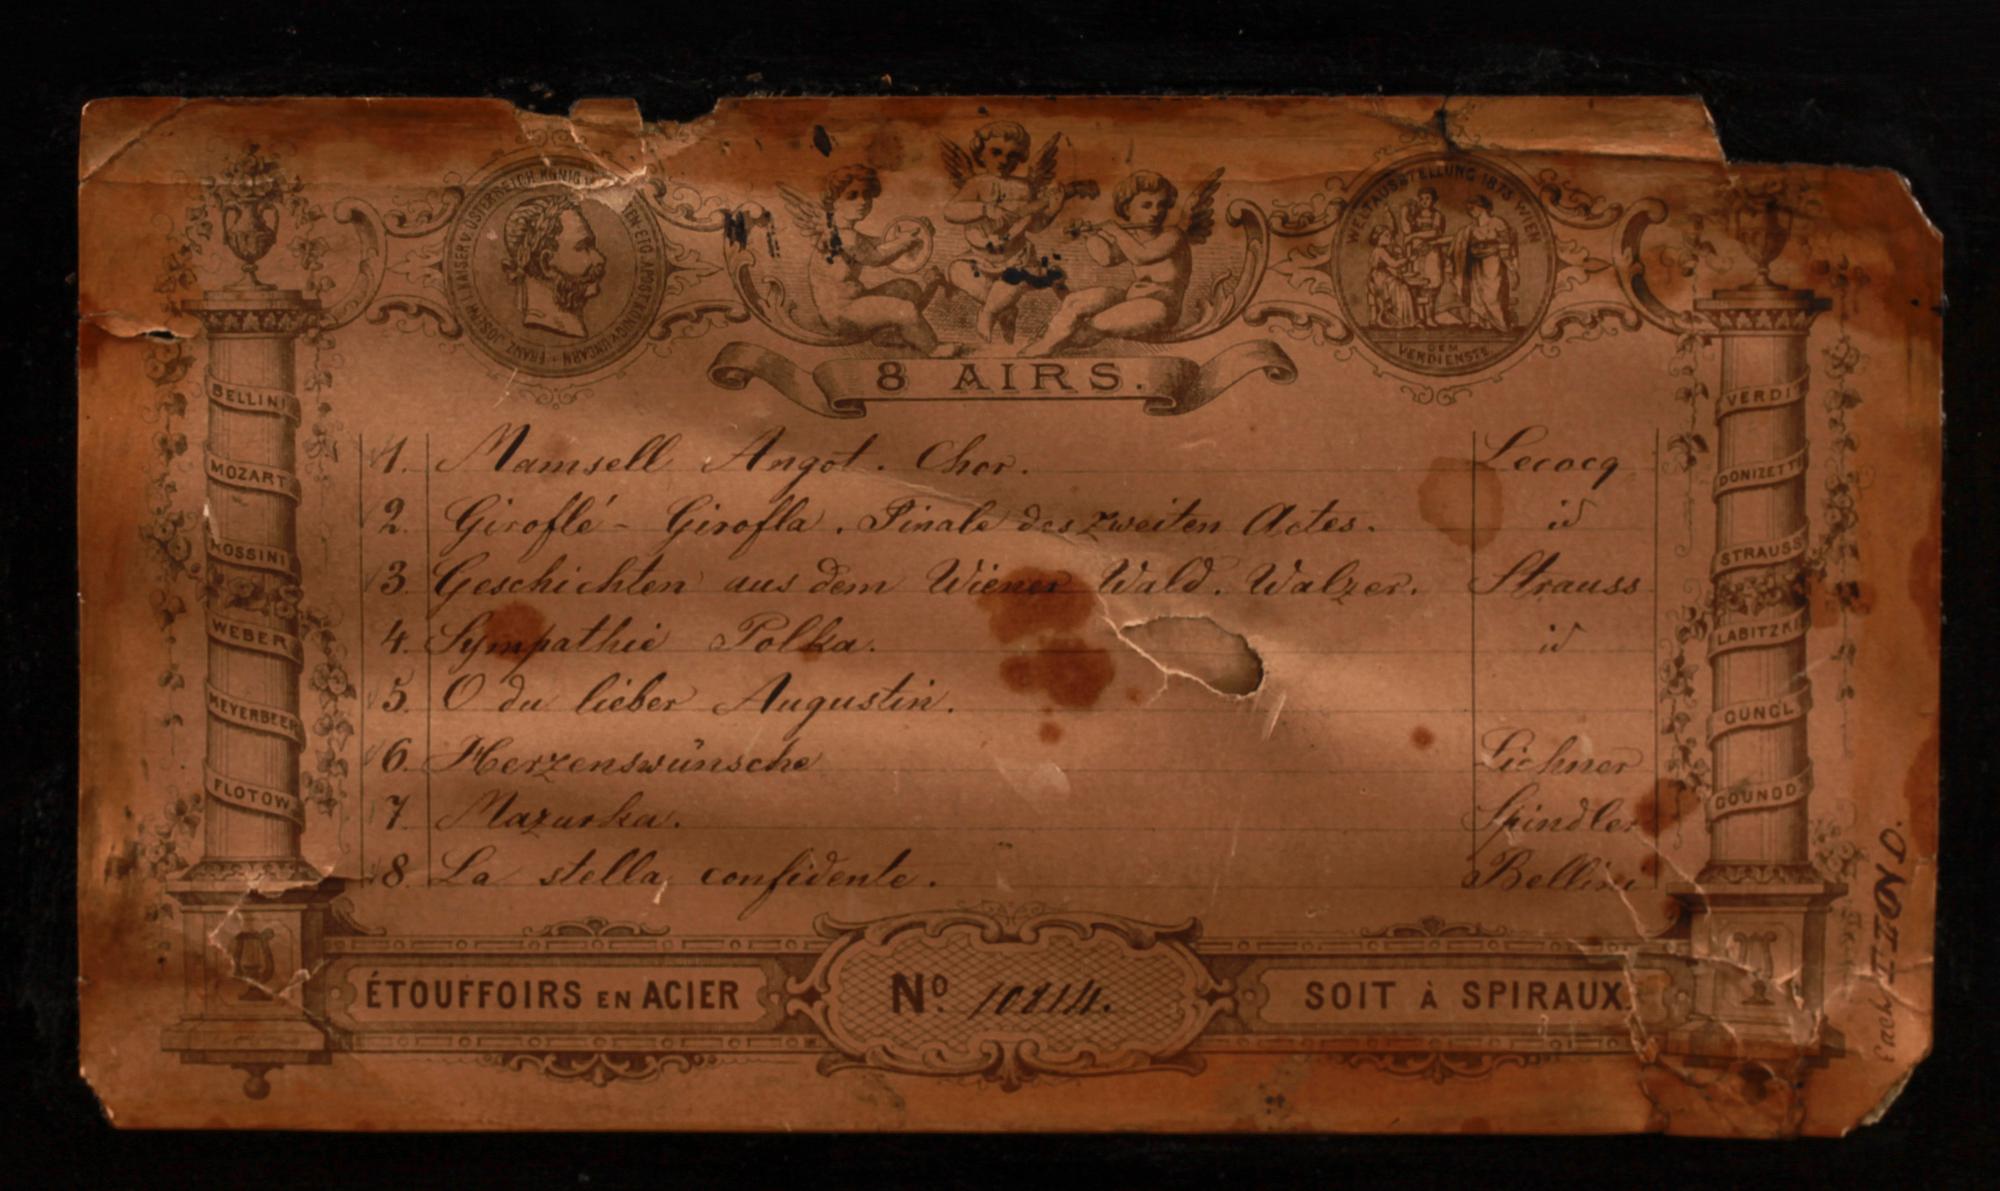 FRANZ JOSEPH I. KAISER V. ÖSTERREICH, KÖNIG APOST. KÖNIG V. UNGARN
WELTAUSSTELLUNG 1873 WIEN
DEM VERDIENSTE
8 AIRS.
1. Mamsell Angot. Chor. Lecocq
2. Giroflé - Girofla. Finale des zweiten Actes. id
3. Geschichten aus dem Wiener Wald. Walzer. Strauss
4. Sympathie Polka. id
5. O du lieber Augustin.
6. Herzenswünsche Lichner
7 Mazurka. Spindler
8. La stella confidente. Bellini
BELLINI
MOZART
ROSSINI
WEBER
MEYERBEER
FLOTOW
VERDI
DONIZETTI
STRAUSS
LABITZKI
GUNGL
GOUNOD
ÉTOUFFOIRS EN ACIER
No. 10814.
SOIT À SPIRAUX.